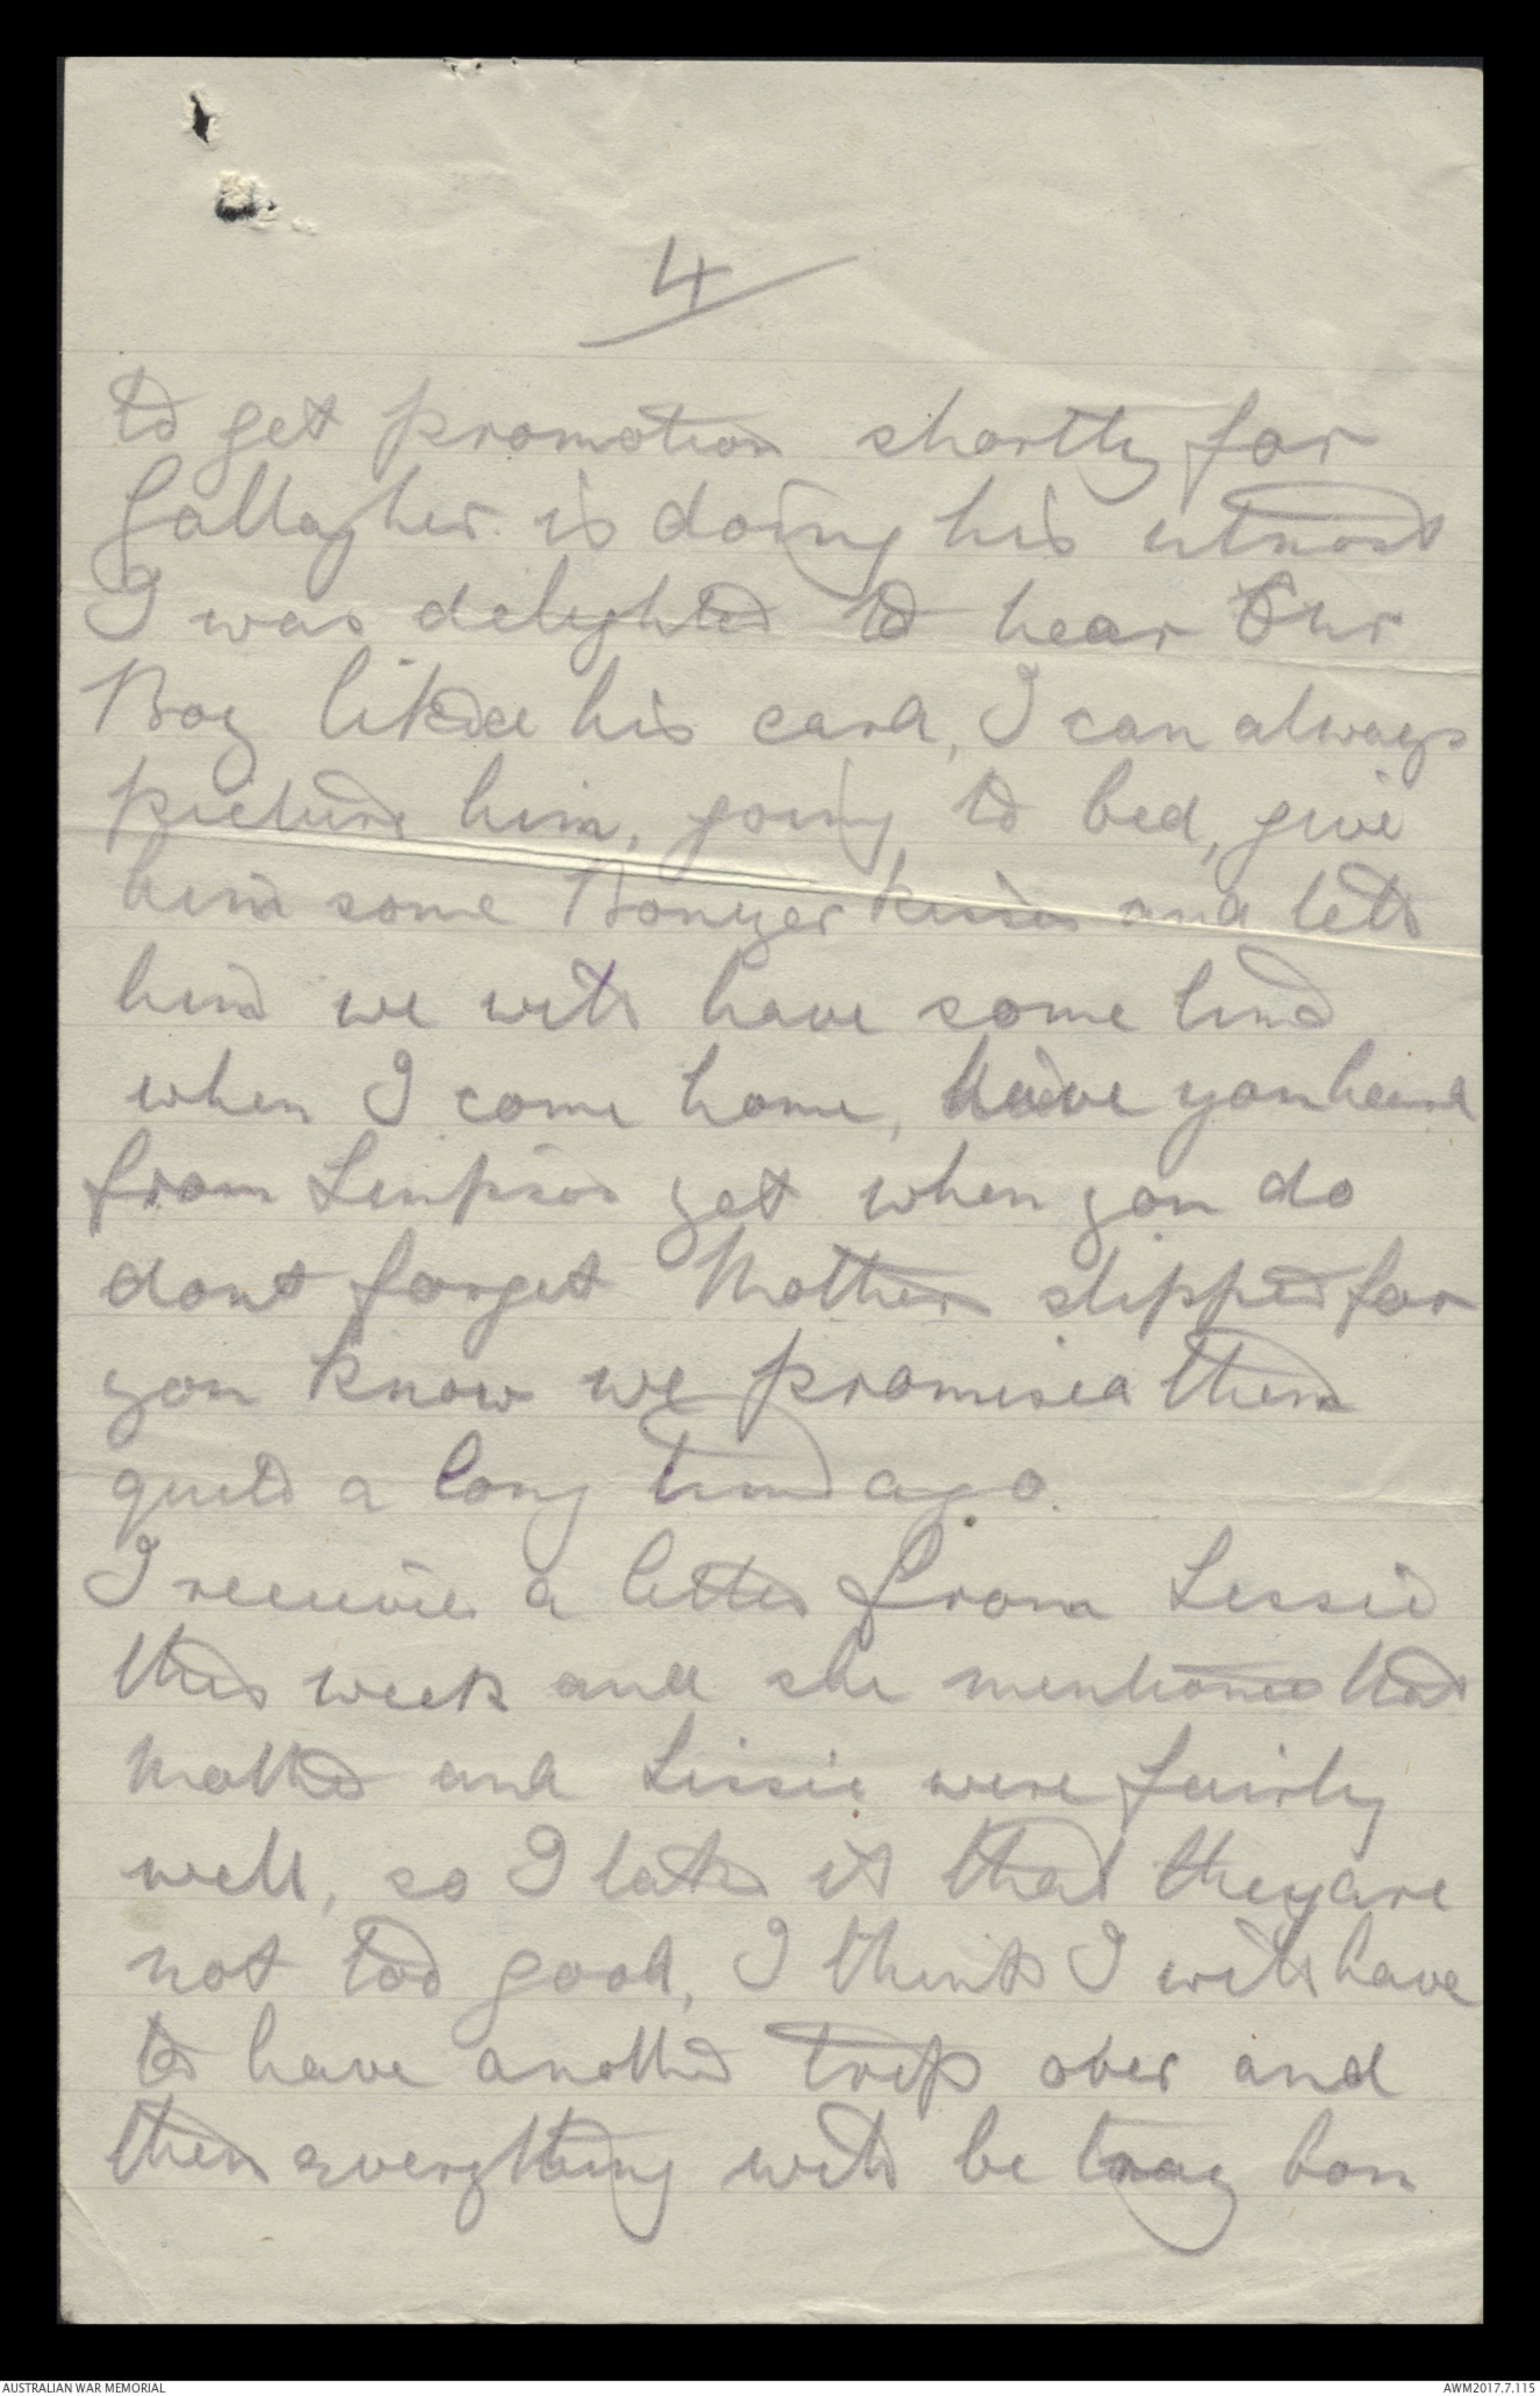 4
to get promotion shortly for
Gallagher is doing his utmost
I was delighted to hear Our
Boy liked his card, I can always
picture him, going to bed, give
him some Bonzer kisses and tell
him we will have some time
when I come home, have you heard
from yet when you do
dont forget Mother slipped for
you know we promised them
quite a long time ago.
I received a letter from Lessie
this week and she mentioned that
Mother and Lissie were fairly
well, so I take it that they are
not too good, I think I will have
to have another trip over and
then everything will be tray bon
AUSTRALIAN WAR MEMORIAL
AWM2017.7.115